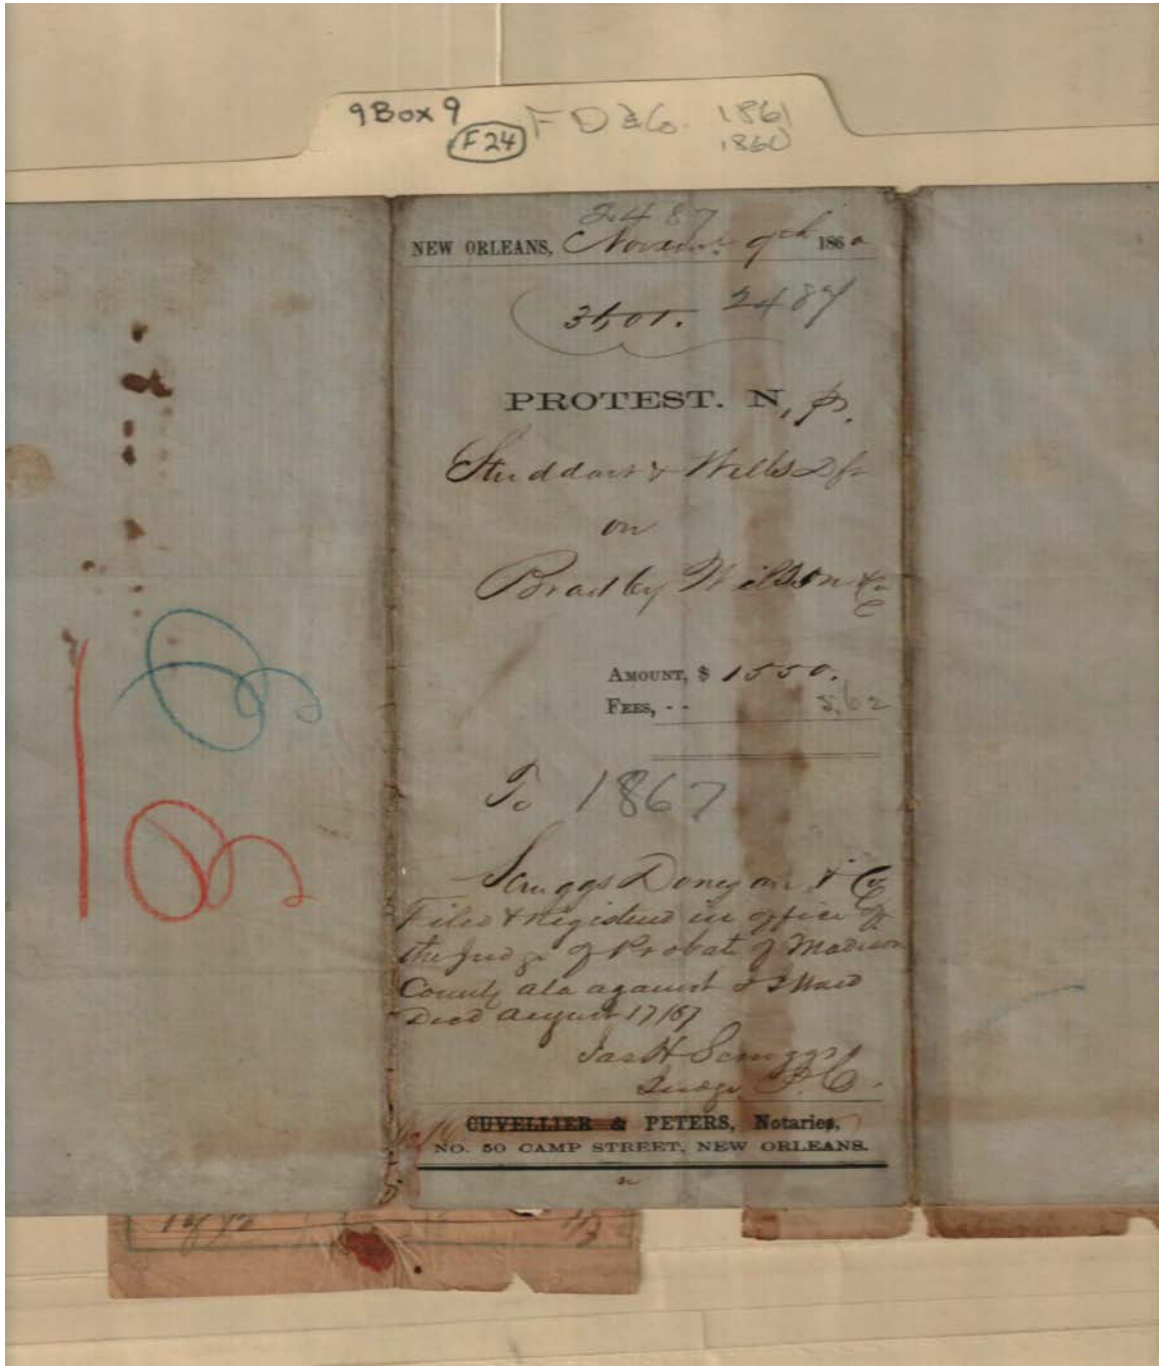 9 Box 9 F D & Co. 1861
F 24 1860
2487
NEW ORLEANS, Novem. 9th 1860
3501. 2487
PROTEST. N, P.
Studdart & Wells Dft
on
Bradley Wilson & Co
AMOUNT, $ 1550.
FEES, - - 5,62
To 1867
Scruggs Donegan & Co
Filed & Registered in office of
the Judge of Probate of Madison
County Ala against
Decd August 17/67
Jas H Scruggs
Judge P. C.
CUVELLIER & PETERS, Notaries,
NO. 50 CAMP STREET, NEW ORLEANS.